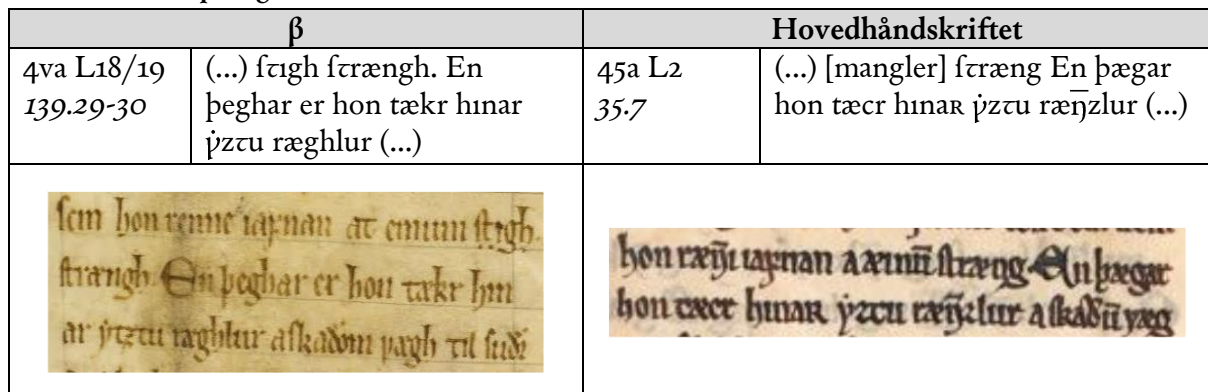 β
Hovedhåndskriftet
4va L18/19
139.29-30
(...) ſꞇıgh ſꞇrængh. En
þeghar er hon tækr hınar
ẏzꞇu ræghlur (...)
45a L2
35.7
(...) [mangler] ſꞇræng En þægar
hon tæcr hınaʀ ẏzꞇu ræŋ̄zlur (...)
ſem hon renne iafnan at einum ſtigh.
ſtrængh. En þeghar er hon tækr hin
ar ẏztu ræghlur
hon iafnan a æinū ſtræng En þægar
hon tæcr hinaʀ ẏztu ræŋ̄zlur